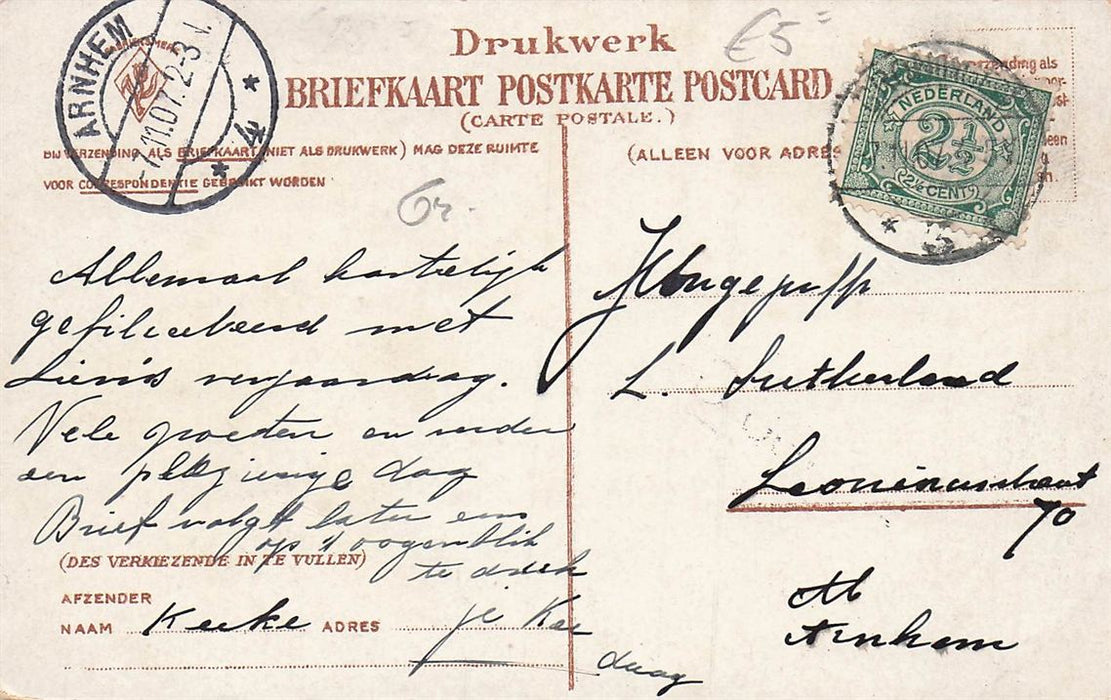 Drukwerk
BRIEFKAART POSTKARTE POSTCARD
(CARTE POSTALE.)
BIJ VERZENDING ALS BRIEFKAART (NIET ALS DRUKWERK) MAG DEZE RUIMTE
VOOR CORRESPONDENTIE GEBRUIKT WORDEN
(ALLEEN VOOR ADRES
zending als
ARNHEM
-7.11.07. 2-3
4
€5=
NEDERLAND
2½
(2½ CENT)
5
6r.
Allemaal hartelijk
gefiliciteerd met
verjaardag.
Vele groeten en verder
een plezierige dag
Brief volgt later een
op 't oogenblik
te druk
je
(DES VERKIEZENDE IN TE VULLEN)
AFZENDER
NAAM Keeke ADRES
L. Sutherland
70
Arnhem